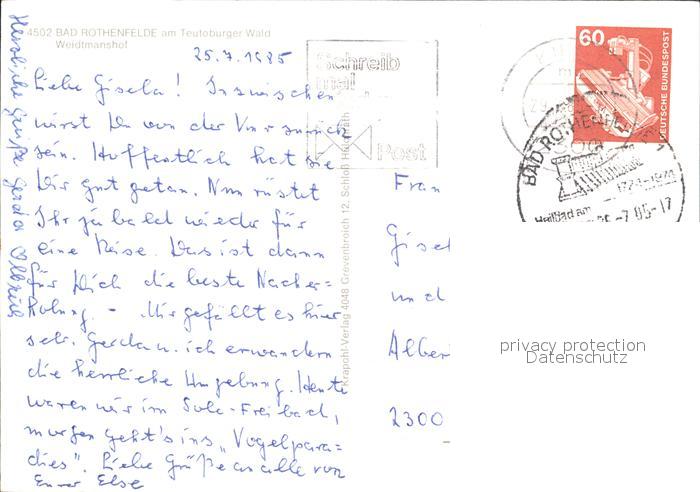 4502 BAD ROTHENFELDE am Teutoburger Wald
Weidtmanshof
25.7.1985
Liebe Gisela! Inzwischen
wirst Du von der Kur zurück
sein. Hoffentlich hat sie
Dir gut getan. Nun rüstet
Ihr ja bald wieder für
eine Reise. Das ist dann
für Dich die beste Nacher=
holung. - Mir gefällt es hier
sehr. Gerda u. ich erwandern
die herrliche Umgebung. Heute
waren wir im Sole-Freibad,
morgen geht's ins „Vogelpara=
dies". Liebe Grüße an alle von
Eurer Else
Herzliche Grüße Gerda
Schreib
mal
Post
Krapohl-Verlag 4048 Grevenbroich 12, Schloß Hülchrath
60
DEUTSCHE BUNDESPOST
BAD ROTHENFELDE
1724-1974
Heilbad am
-7.85-17
Frau
Gisel
und
Alber
2300
privacy protection
Datenschutz